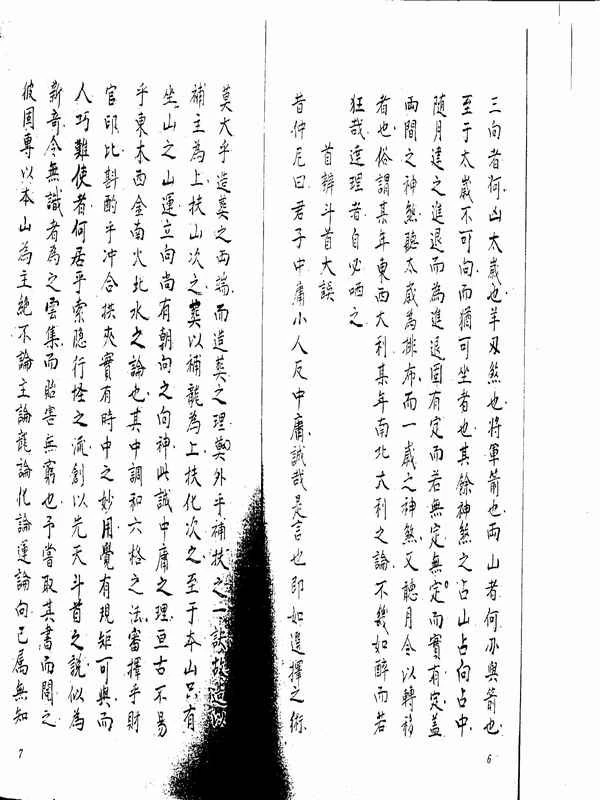 三向者何凶太歲也羊刃煞也將軍箭也兩山者何刃與箭也
至于太歲不可向而猶可坐者也其餘神煞之占山占向占中
隨月建之進退而為進退固有定而若無定無定而實有定蓋
兩間之神煞聽太歲為排布而一歲之神煞又聽月令以轉移
者也俗謂某年東西大利某年南北大利之論不幾如醉而若
狂哉達理者自必哂之
首辨斗首大誤
昔仲尼曰君子中庸小人反中庸誠哉是言也即如選擇之術
6
莫大乎造葬之兩端而造葬之理莫外乎補扶之一訣故造以
補主為上扶山次之葬以補龍為上扶化次之至于本山只有
坐山之山運立向尚有朝向之向神此誠中庸之理亘古不易
乎東木西金南火北水之論也其中調和六格之法審擇乎財
官印比斟酌乎冲合拱夾實有時中之妙用覺有規矩可與而
人巧難使者何居乎索隐行怪之流創以先天斗首之說似為
新奇令無識者為之雲集而貽害無窮也予嘗取其書而閱之
彼國專以本山為主絶不論主論龍論化論運論向已屬無知
7